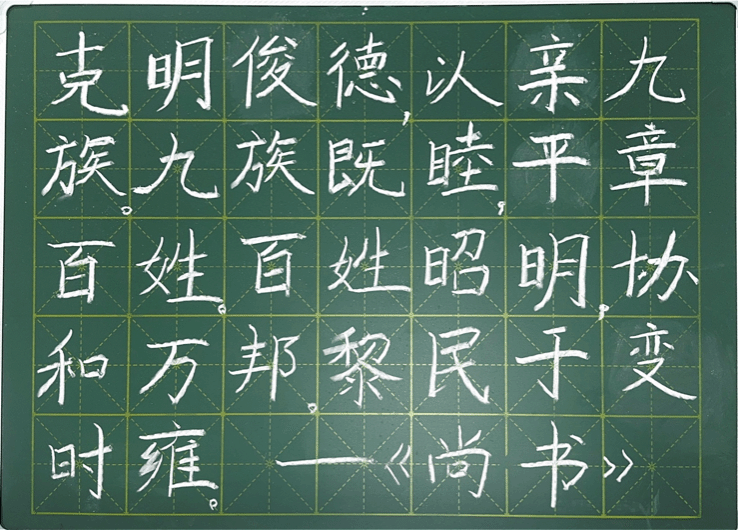 克明俊德,以亲九
族。九族既睦,平章
百姓。百姓昭明,协
和万邦。黎民于变
时雍。—《尚书》